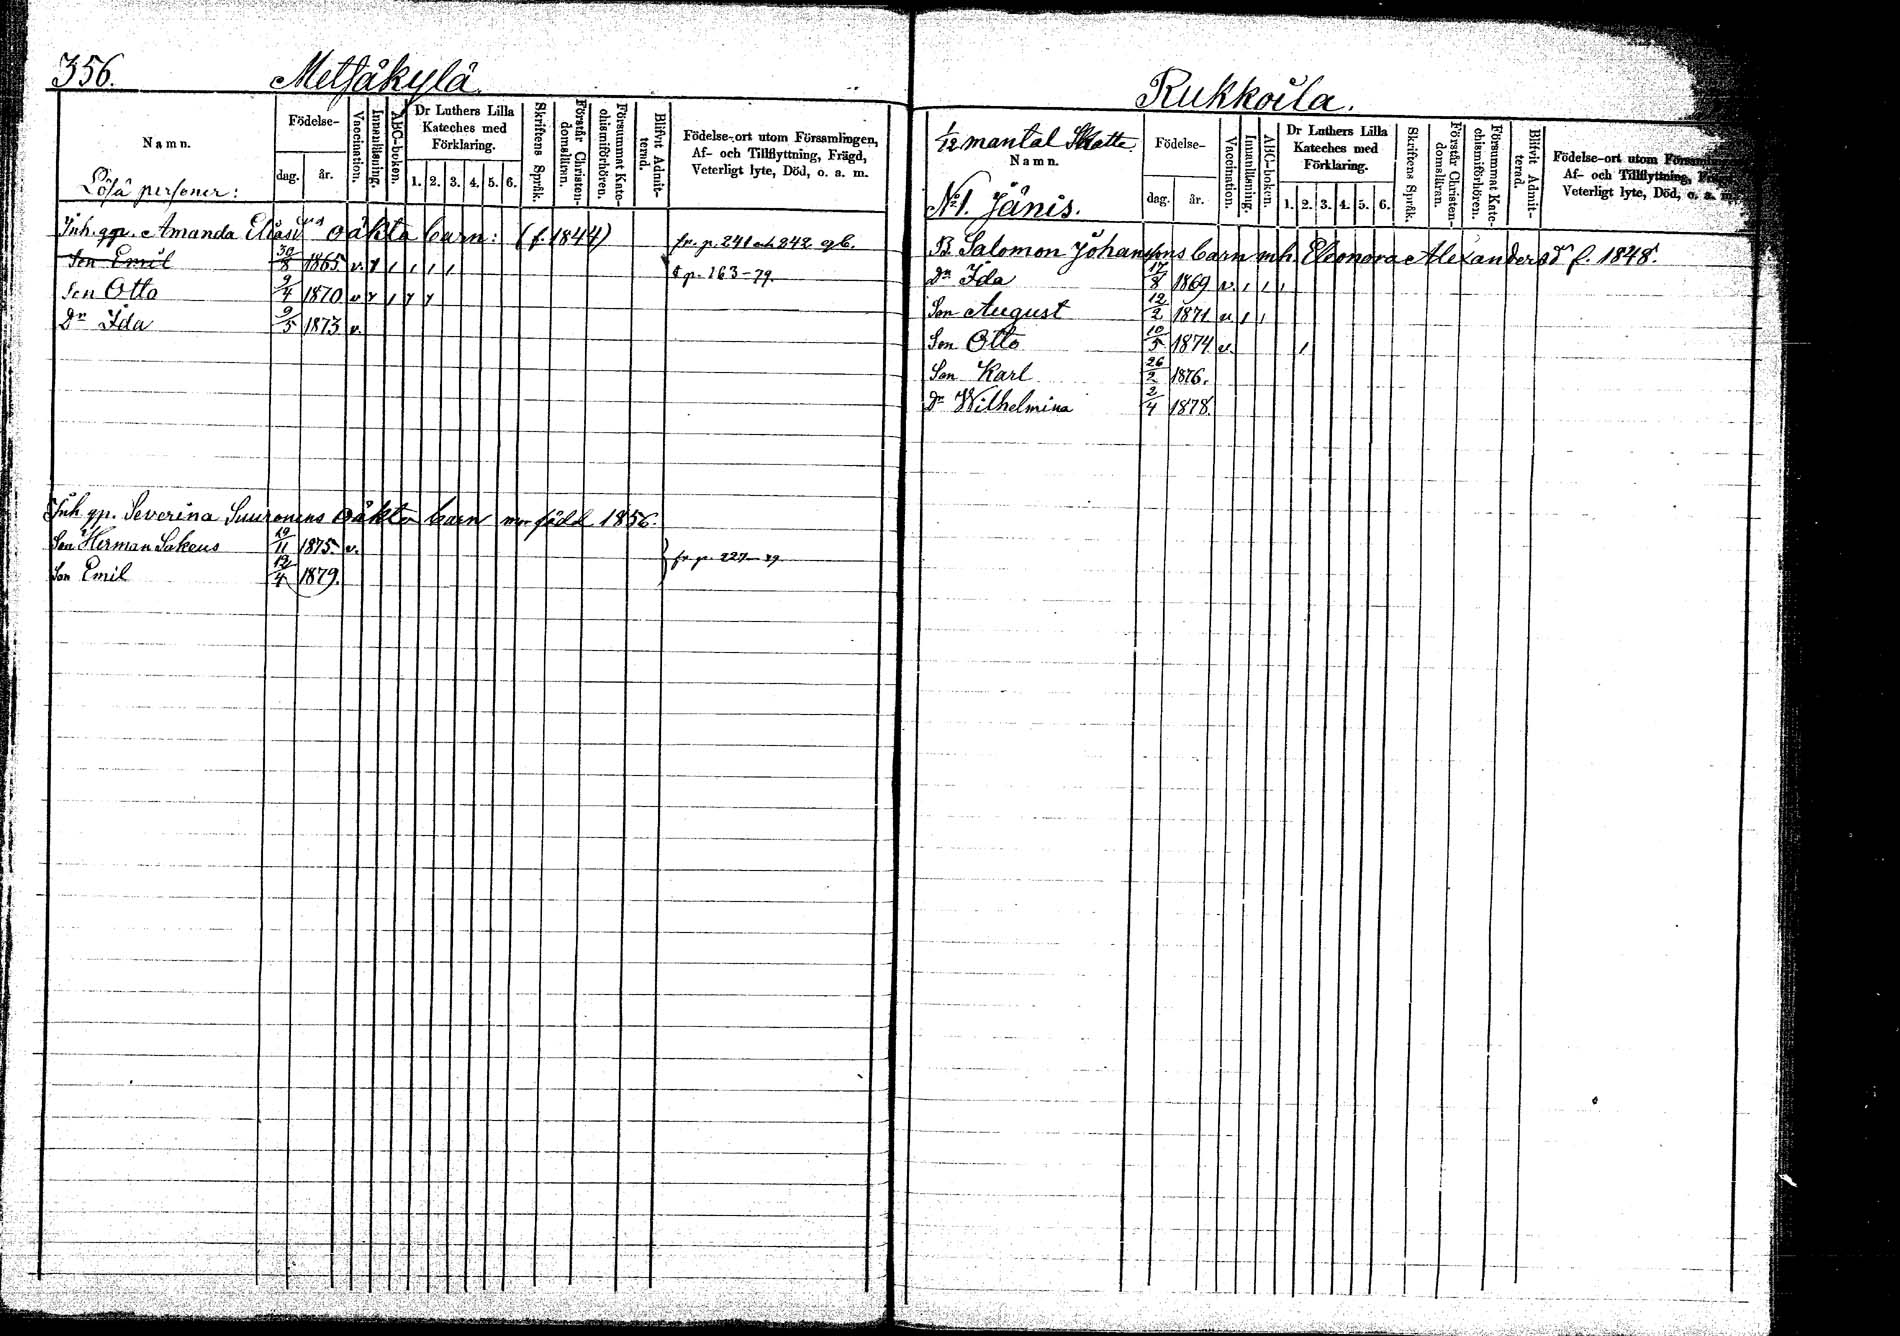 356.
Metsäkylä.
Namn.
Födelse-
dag.
år.
Vaccination.
Innanläsning.
ABC-boken.
Dr Luthers Lilla
Kateches med
Förklaring.
1. 2. 3. 4. 5. 6.
Skriftens Språk.
Förstår Christen-
domsläran.
Försummat Kate-
chismiförhören.
Blifvit Admit-
terad.
Födelse-ort utom Församlingen,
Af- och Tillflyttning, Frägd,
Veterligt lyte, Död, o. a. m.
Lösa personer:
Inh. gp. Amanda Eliasi oäkta barn: (f. 1844) fr. p. 241 och 242 gb.
Son Emil 30/8 1865 v. p. 163-79.
Son Otto 2/4 1870 v
Dr Ida 9/5 1873 v.
Inh. gp. Severina Suuronens oäkta barn mor född 1856.
Son Herman Sakeus 29/11 1875 v. fr. p. 227-79
Son Emil 12/4 1879.
Rukkoila.
1/12 mantal Skatte.
Namn.
Födelse-
dag.
år.
Vaccination.
Innanläsning.
ABC-boken.
Dr Luthers Lilla
Kateches med
Förklaring.
1. 2. 3. 4. 5. 6.
Skriftens Språk.
Förstår Christen-
domsläran.
Försummat Kate-
chismiförhören.
Blifvit Admit-
terad.
Födelse-ort utom
Af- och Tillflyttning,
Veterligt lyte, Död, o. a. m.
No 1. Jänis.
B. Salomon Johanssons barn mh. Eleonora Alexandersdr f. 1848.
Dr Ida 17/8 1869 v.
Son August 12/2 1871 v
Son Otto 10/5 1874 v.
Son Karl 26/2 1876.
Dr Wilhelmina 2/4 1878.